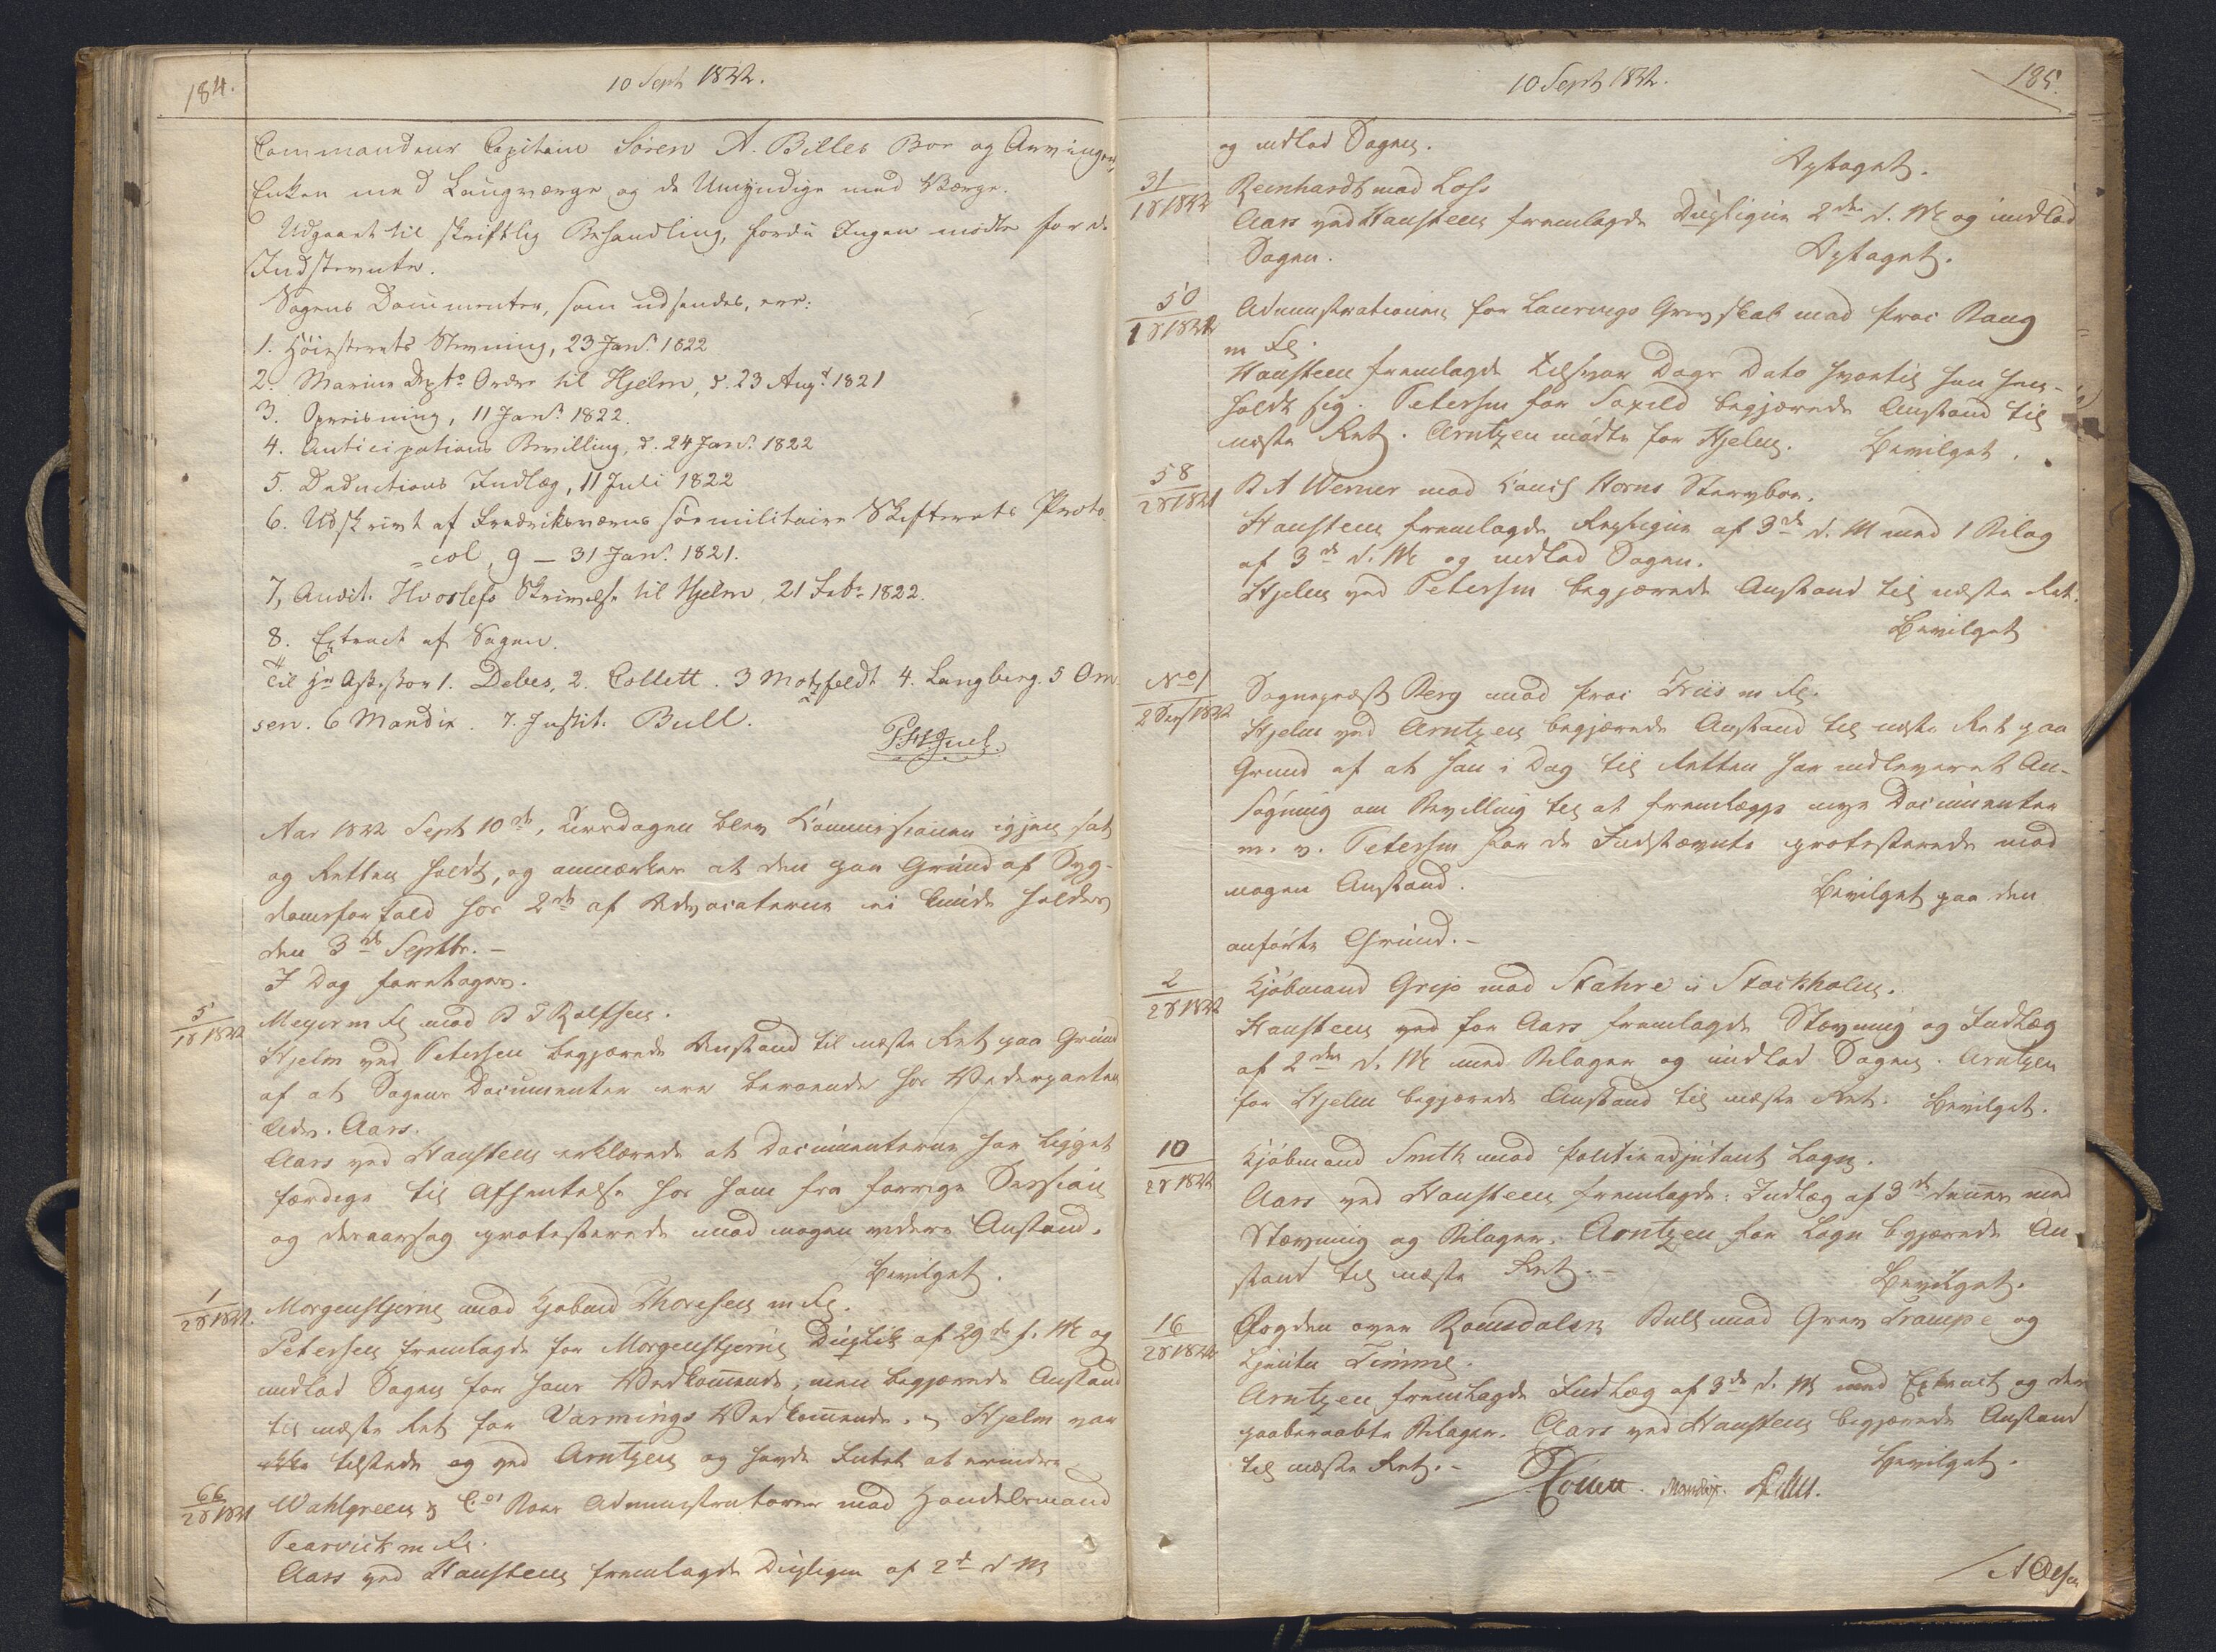 184.
10 Sept 1822.
Commandeur Capitain Søren A. Billes Boe og Arvinger,
Enken med Laugværge og de Umyndige med Værge.
Udgaaet til skriftlig Behandling, fordi Ingen mødte for de
Indstevnte.
Sagens Documenter, som udsendes, ere:
1. Høiesterets Stevning, 23 Janr. 1822
2. Marine Depts Ordre til Hjelm, d. 23 Augt 1821
3. Opreisning, 11 Janr. 1822.
4. Anticipations Bevilling, d. 24 Janr. 1822
5. Deductions Indlæg, 11 Juli 1822
6. Udskrivt af Fredriksværns søemilitaire Skifterets Proto
=col, 9 – 31 Janr. 1821.
7, Audit. Hvoslefs Skrivelse til Hjelm, 21 Febr. 1822.
8. Extract af Sagen.
Til Hr Assessor 1. Debes, 2. Collett. 3 Motzfeldt 4. Langberg. 5 Om
sen. 6 Mandix. 7. Justit. Bull.
Aar 1822 Sept 10de, Tirsdagen blev Commissionen igjen sat
og Retten holdt, og anmærkes at den paa Grund af Syg-
domsforfald hos 2de af Advocaterne ei kunde holdes
den 3de Septbr. –
I Dag foretages.
5
18 1822
Meyer m Fl mod B J Rolfsen.
Hjelm ved Petersen begjærede Anstand til næste Ret paa Grund
af at Sagens Documenter ere beroende hos Vederparten
Adv. Aars.
Aars ved Hansteen erklærede at Documenterne har ligget
færdige til Afhentelse hos ham fra forrige Session
og deraarsag protesterede mod nogen videre Anstand.
Bevilget.
1
28 1821.
Morgenstjerne mod Kjøbmd Thoresen m Fl.
Petersen fremlagde for Morgenstjerne Duplik af 29de f. M og
indlod Sagen for hans Vedkommende, men begjærede Anstand
til næste Ret for Varnings Vedkommende. Hjelm var
ikke tilstede og ved Arntzen og havde Intet at erindre
66
28 1821
Wahlgreen & Co Boes Administratorer mod Handelsmand
Tearvick m Fl.
Aars ved Hansteen fremlagde Duplique af 2de d M
10 Sept 1822.
185.
og indlod Sagen.
Optaget.
31
18 1822
Reinhardt mod Loss
Aars ved Hansteen fremlagde Duplique 2den d. M og indlod
Sagen.
Optaget.
50
18 1822
Administrationen for Laurvigs Grevskab mod Proc Bang
m Fl.
Hansteen fremlagde Tilsvar Dags Dato hvortil han hen-
holdt sig. Petersen for Soxild begjærede Anstand til
næste Ret. Arntzen mødte for Hjelm.
Bevilget.
58
28 1821
B A Werner mod Horns Stervboe.
Hansteen fremlagde Replique af 3de d. M med 1 Bilag
af 3de d. M og indlod Sagen.
Hjelm ved Petersen begjærede Anstand til næste Ret.
Bevilget
No 1
2 Sess 1822
Sognepræst Berg mod Proc Friis m Fl.
Hjelm ved Arntzen begjærede Anstand til næste Ret paa
Grund af at han i Dag til Retten har indleveret An-
søgning om Bevilling til at fremlægge nye Documenter
m. v. Petersen for de Indstævnte protesterede mod
nogen Anstand.
Bevilget paa den
anførte Grund. –
2
28 1822
Kjøbmand Grip mod Stahre i Stockholm.
Hansteen ved for Aars fremlagde Stævning og Indlæg
af 2den d. M med Bilager og indlod Sagen. Arntzen
for Hjelm begjærede Anstand til næste Ret.
Bevilget.
10
28 1822
Kjøbmand Smith mod Politieadjutant Lagn.
Aars ved Hansteen fremlagde: Indlæg af 3de dennes med
Stævning og Bilager. Arntzen for Lagn begjærede An
stand til næste Ret. –
Bevilget.
16
28 1822
Fogden over Romsdalen Bull mod Grev Trampe og
Timme.
Arntzen fremlagde Indlæg af 3de d. M med Extract og de
paaberaabte Bilager. Aars ved Hansteen begjærede Anstand
til næste Ret. –
Bevilget.
Mandix. Bull.